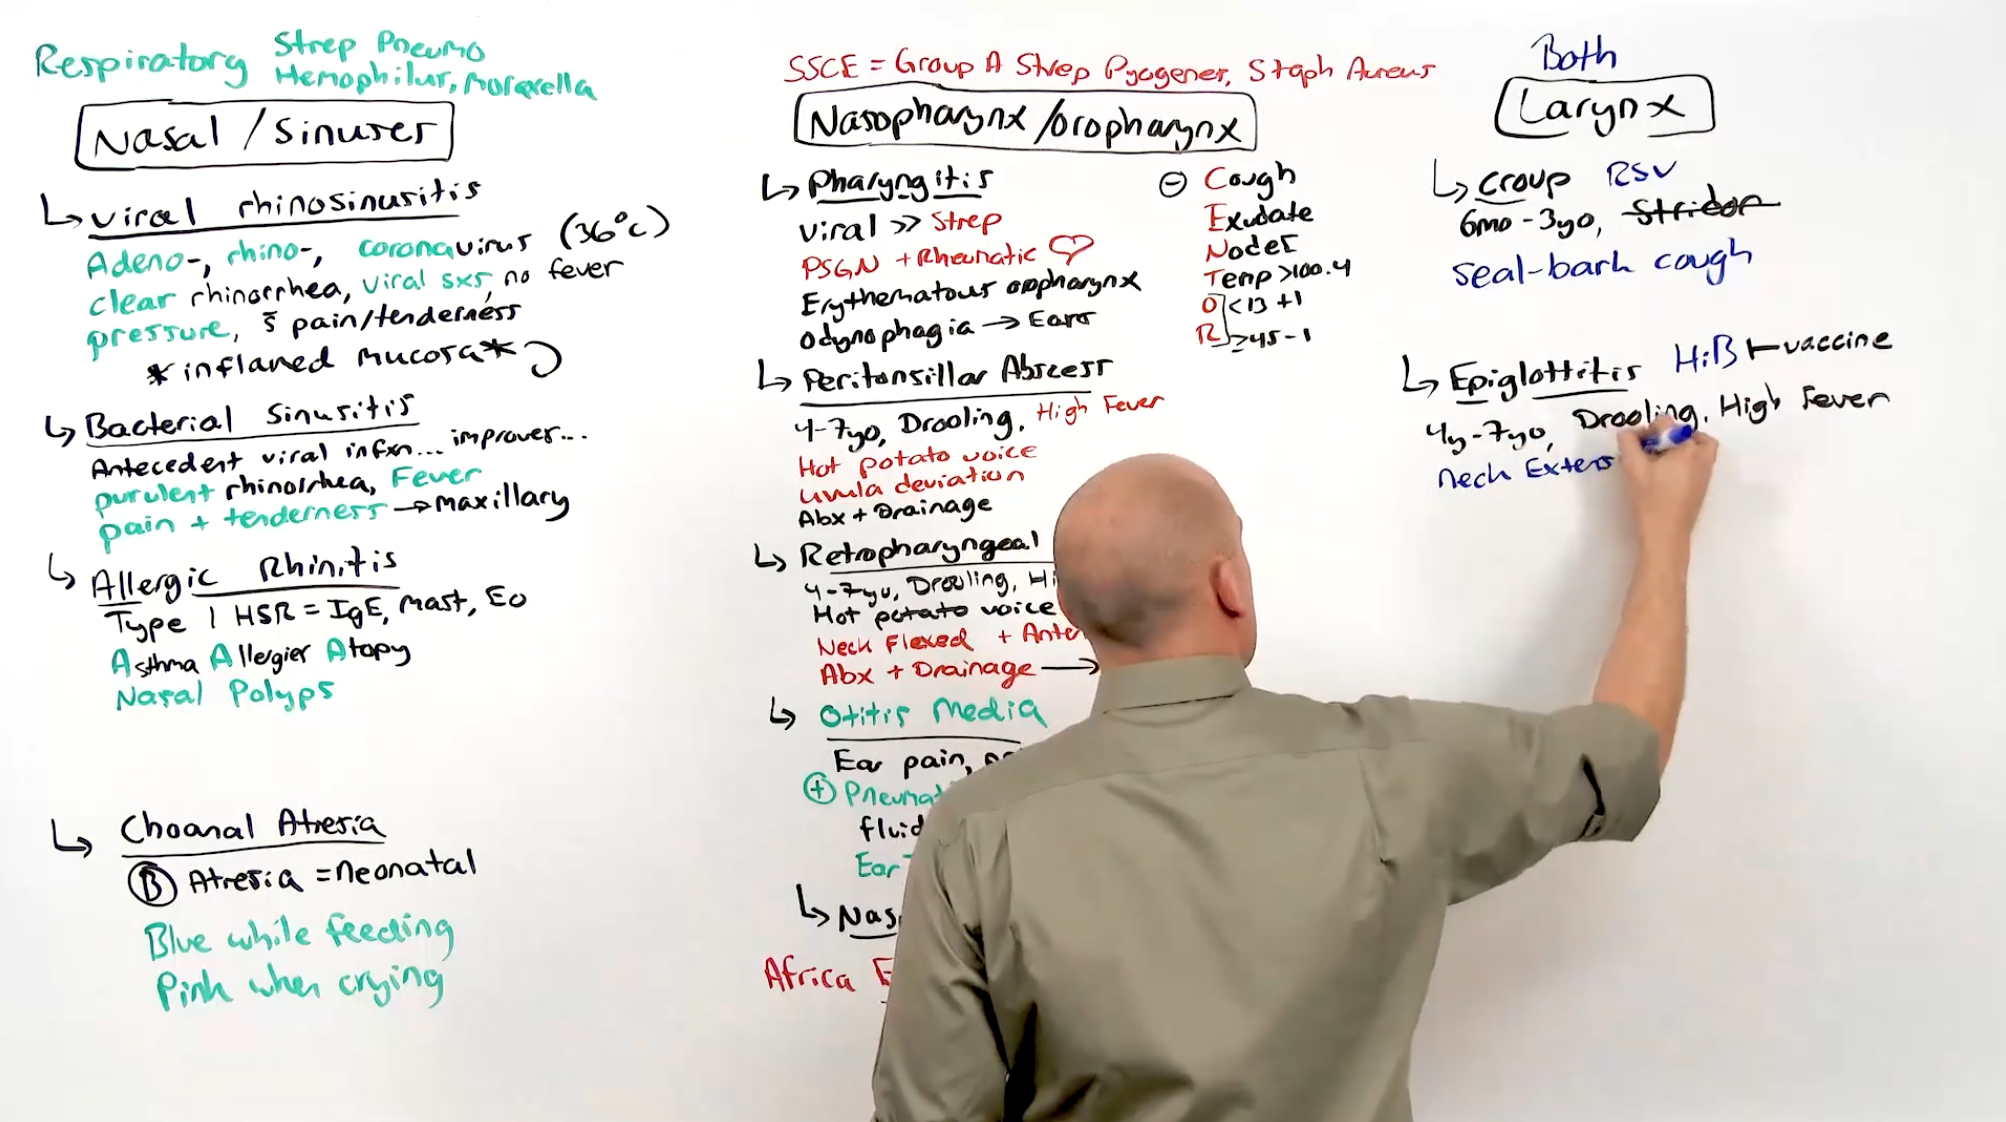 Respiratory Strep Pneumo
Hemophilus, Moraxella
Nasal / Sinuses
↳ viral rhinosinusitis
Adeno-, rhino-, coronavirus (36°C)
clear rhinorrhea, viral sxs, no fever
pressure, s̄ pain/tenderness
*inflamed mucosa*
↳ Bacterial Sinusitis
Antecedent viral infxn... improves...
purulent rhinorrhea, Fever
pain + tenderness → maxillary
↳ Allergic Rhinitis
Type 1 HSR = IgE, Mast, Eo
Asthma Allergies Atopy
Nasal Polyps
↳ Choanal Atresia
Ⓑ Atresia = neonatal
Blue while feeding
Pink when crying
SSCE = Group A Strep Pyogenes, Staph Aureus
Nasopharynx/oropharynx
↳ Pharyngitis
viral >> Strep
PSGN + Rheumatic ♡
Erythematous oropharynx
odynophagia → Ears
⊖ Cough
Exudate
Nodes
Temp >100.4
O <13 +1
R ≥45 -1
↳ Peritonsillar Abscess
4-7yo, Drooling, High Fever
Hot potato voice
uvula deviation
Abx + Drainage
↳ Retropharyngeal
4-7yo, Drooling, Hi
Hot potato voice
Neck Flexed + Anter
Abx + Drainage →
↳ Otitis Media
Ear pain,
⊕ Pneumat
fluid
Ear
↳ Nas
Africa E
Both
Larynx
↳ croup RSV
6mo - 3yo, Stridor
seal-bark cough
↳ Epiglottitis HiB ⊢ vaccine
4y-7yo, Drooling, High Fever
neck Extens